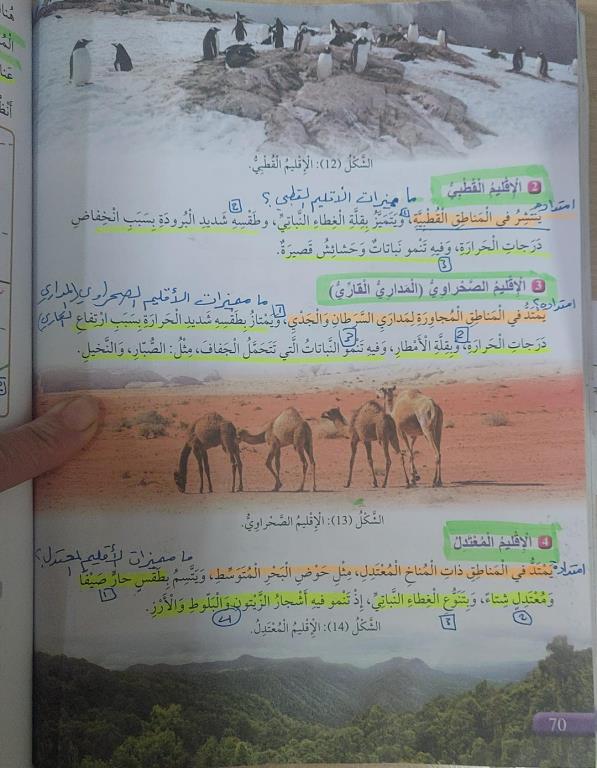 الشَّكْلُ (12): الْإِقْليمُ الْقُطْبِيُّ.
2 الْإِقْليمُ الْقُطْبِيُّ
ما مميزات الأقليم القطبي؟
امتداده
يَنْتَشِرُ في الْمَناطِقِ الْقُطْبِيَّةِ، وَيَتَمَيَّزُ بِقِلَّةِ الْغِطاءِ النَّباتِيِّ، وَطَقْسِهِ شَديدِ الْبُرودَةِ بِسَبَبِ انْخِفاضِ
دَرَجاتِ الْحَرارَةِ، وَفيهِ تَنْمو نَباتاتٌ وَحَشائِشُ قَصيرَةٌ.
3
3 الْإِقْليمُ الصَّحْراوِيُّ (الْمَدارِيُّ الْقارِّيُّ)
ما مميزات الأقليم الصحراوي (المداري القاري)
امتداده؟
يَمْتَدُّ في الْمَناطِقِ الْمُجاوِرَةِ لِمَدارَيِ السَّرَطانِ وَالْجَدْيِ، وَيَمْتازُ بِطَقْسِهِ شَديدِ الْحَرارَةِ بِسَبَبِ ارْتِفاعِ
دَرَجاتِ الْحَرارَةِ، وَبِقِلَّةِ الْأَمْطارِ، وَفيهِ تَنْمو النَّباتاتُ الَّتي تَتَحَمَّلُ الْجَفافَ، مِثْلُ: الصَّبّارِ، وَالنَّخيلِ.
الشَّكْلُ (13): الْإِقْليمُ الصَّحْراوِيُّ.
4 الْإِقْليمُ الْمُعْتَدِلُ
ما مميزات الأقليم المعتدل؟
امتداده
يَمْتَدُّ في الْمَناطِقِ ذاتِ الْمُناخِ الْمُعْتَدِلِ، مِثْلِ حَوْضِ الْبَحْرِ الْمُتَوَسِّطِ، وَيَتَّسِمُ بِطَقْسٍ حارٍّ صَيْفًا
1
وَمُعْتَدِلٍ شِتاءً، وَبِتَنَوُّعِ الْغِطاءِ النَّباتِيِّ، إِذْ تَنْمو فيهِ أَشْجارُ الزَّيْتونِ وَالْبَلّوطِ وَالْأَرْزِ.
2 3 4
الشَّكْلُ (14): الْإِقْليمُ الْمُعْتَدِلُ.
70